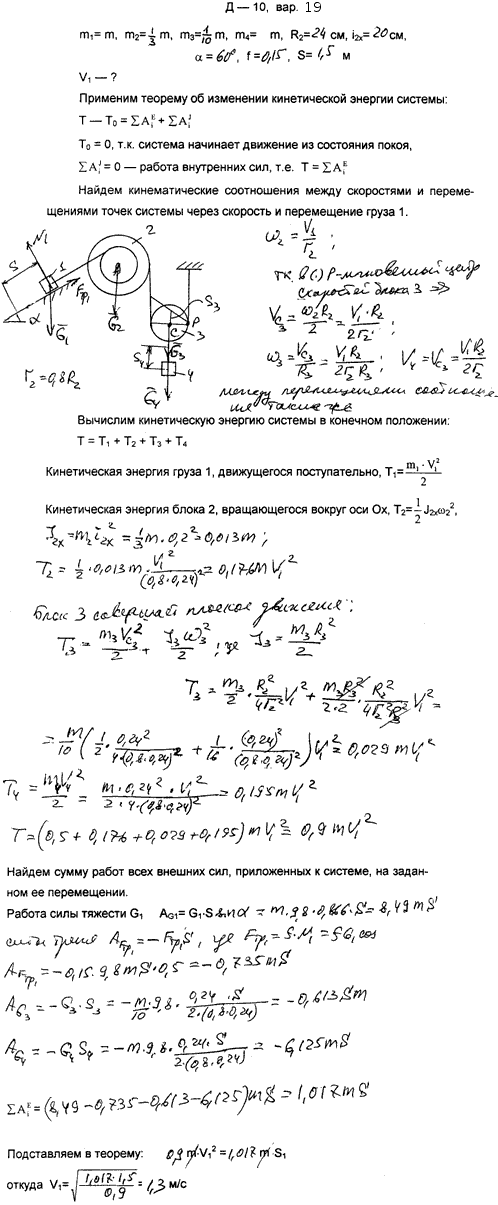 Д — 10, вар. 19
m₁= m, m₂=1/3 m, m₃=1/10 m, m₄= m, R₂=24 см, i₂ₓ=20 см,
α=60°, f=0,15, S=1,5 м
V₁ — ?
Применим теорему об изменении кинетической энергии системы:
T — T₀ = ∑Aᵢᴱ + ∑Aᵢᴶ
T₀ = 0, т.к. система начинает движение из состояния покоя,
∑Aᵢᴶ = 0 — работа внутренних сил, т.е. T = ∑Aᵢᴱ
Найдем кинематические соотношения между скоростями и переме-
щениями точек системы через скорость и перемещение груза 1.
N₁
S
1
Fтр₁
α
G̅₁
2
G̅₂
P
S₃
3
C
S₄
G̅₃
4
G̅₄
r₂=0,8R₂
ω₂ = V₁/r₂ ;
тк в (·) P-мгновенный центр
скоростей блока 3 ⇒
V_C₃ = ω₂R₂/2 = V₁·R₂/2r₂ ;
ω₃ = V_C₃/R₃ = V₁R₂/2r₂R₃ ; V₄=V_C₃= V₁R₂/2r₂
между перемещениями соотноше-
ния такие же
Вычислим кинетическую энергию системы в конечном положении:
T = T₁ + T₂ + T₃ + T₄
Кинетическая энергия груза 1, движущегося поступательно, T₁= m₁·V₁²/2
Кинетическая энергия блока 2, вращающегося вокруг оси Ox, T₂= 1/2 J₂ₓω₂²,
J₂ₓ=m₂i₂ₓ² = 1/3 m·0,2²=0,013m ;
T₂ = 1/2 ·0,013m· V₁²/(0,8·0,24)² =0,176mV₁²
Блок 3 совершает плоское движение:
T₃= m₃V_C₃²/2 + J₃ω₃²/2 ; где J₃ = m₃R₃²/2
T₃ = m₃/2 · R₂²/4r₂² V₁² + m₃R₃²/2·2 · R₂²/4r₂²R₃² V₁² =
= m/10 (1/2 · 0,24²/4(0,8·0,24)² + 1/16 · (0,24)²/(0,8·0,24)²)V₁² = 0,029 mV₁²
T₄ = mV₄²/2 = m·0,24²·V₁²/2·4·(0,8·0,24)² = 0,195mV₁²
T=(0,5 + 0,176+0,029+0,195) mV₁² = 0,9 mV₁²
Найдем сумму работ всех внешних сил, приложенных к системе, на задан-
ном ее перемещении.
Работа силы тяжести G₁ A_G1= G₁·S sin α = m·9,8·0,866·S=8,49 mS
силы трения A_Fтр₁ = −Fтр₁S, где Fтр₁=f·N₁ =fG₁cos
A_Fтр₁ = −0,15·9,8mS·0,5=−0,735mS
A_G₃ = −G₃·S₃ = −m/10·9,8· 0,24·S/2·(0,8·0,24) = −0,613Sm
A_G₄ = −G₄S₄ = −m·9,8· 0,24·S/2·(0,8·0,24) = −6,125mS
∑Aᵢᴱ=(8,49−0,735−0,613−6,125)mS=1,017mS
Подставляем в теорему: 0,9 m·V₁²=1,017 m·S₁
откуда V₁= √(1,017·1,5/0,9) = 1,3 м/с